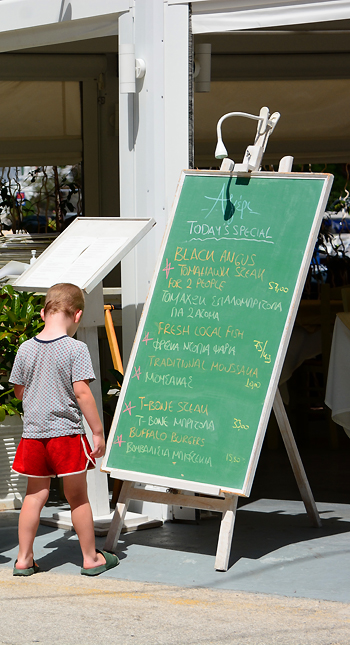 Αύρα
TODAY'S SPECIAL
BLACK ANGUS
TOMAHAWK STEAK
FOR 2 PEOPLE 57,00
ΤΟΜΑΧΩΚ ΣΠΑΛΟΜΠΡΙΖΟΛΑ
ΓΙΑ 2 ΑΤΟΜΑ
FRESH LOCAL FISH
ΦΡΕΣΚΑ ΝΤΟΠΙΑ ΨΑΡΙΑ 75/kg
TRADITIONAL MOUSSAKA
ΜΟΥΣΑΚΑΣ
T-BONE STEAK
T-BONE ΜΠΡΙΖΟΛΑ
BUFFALO BURGERS